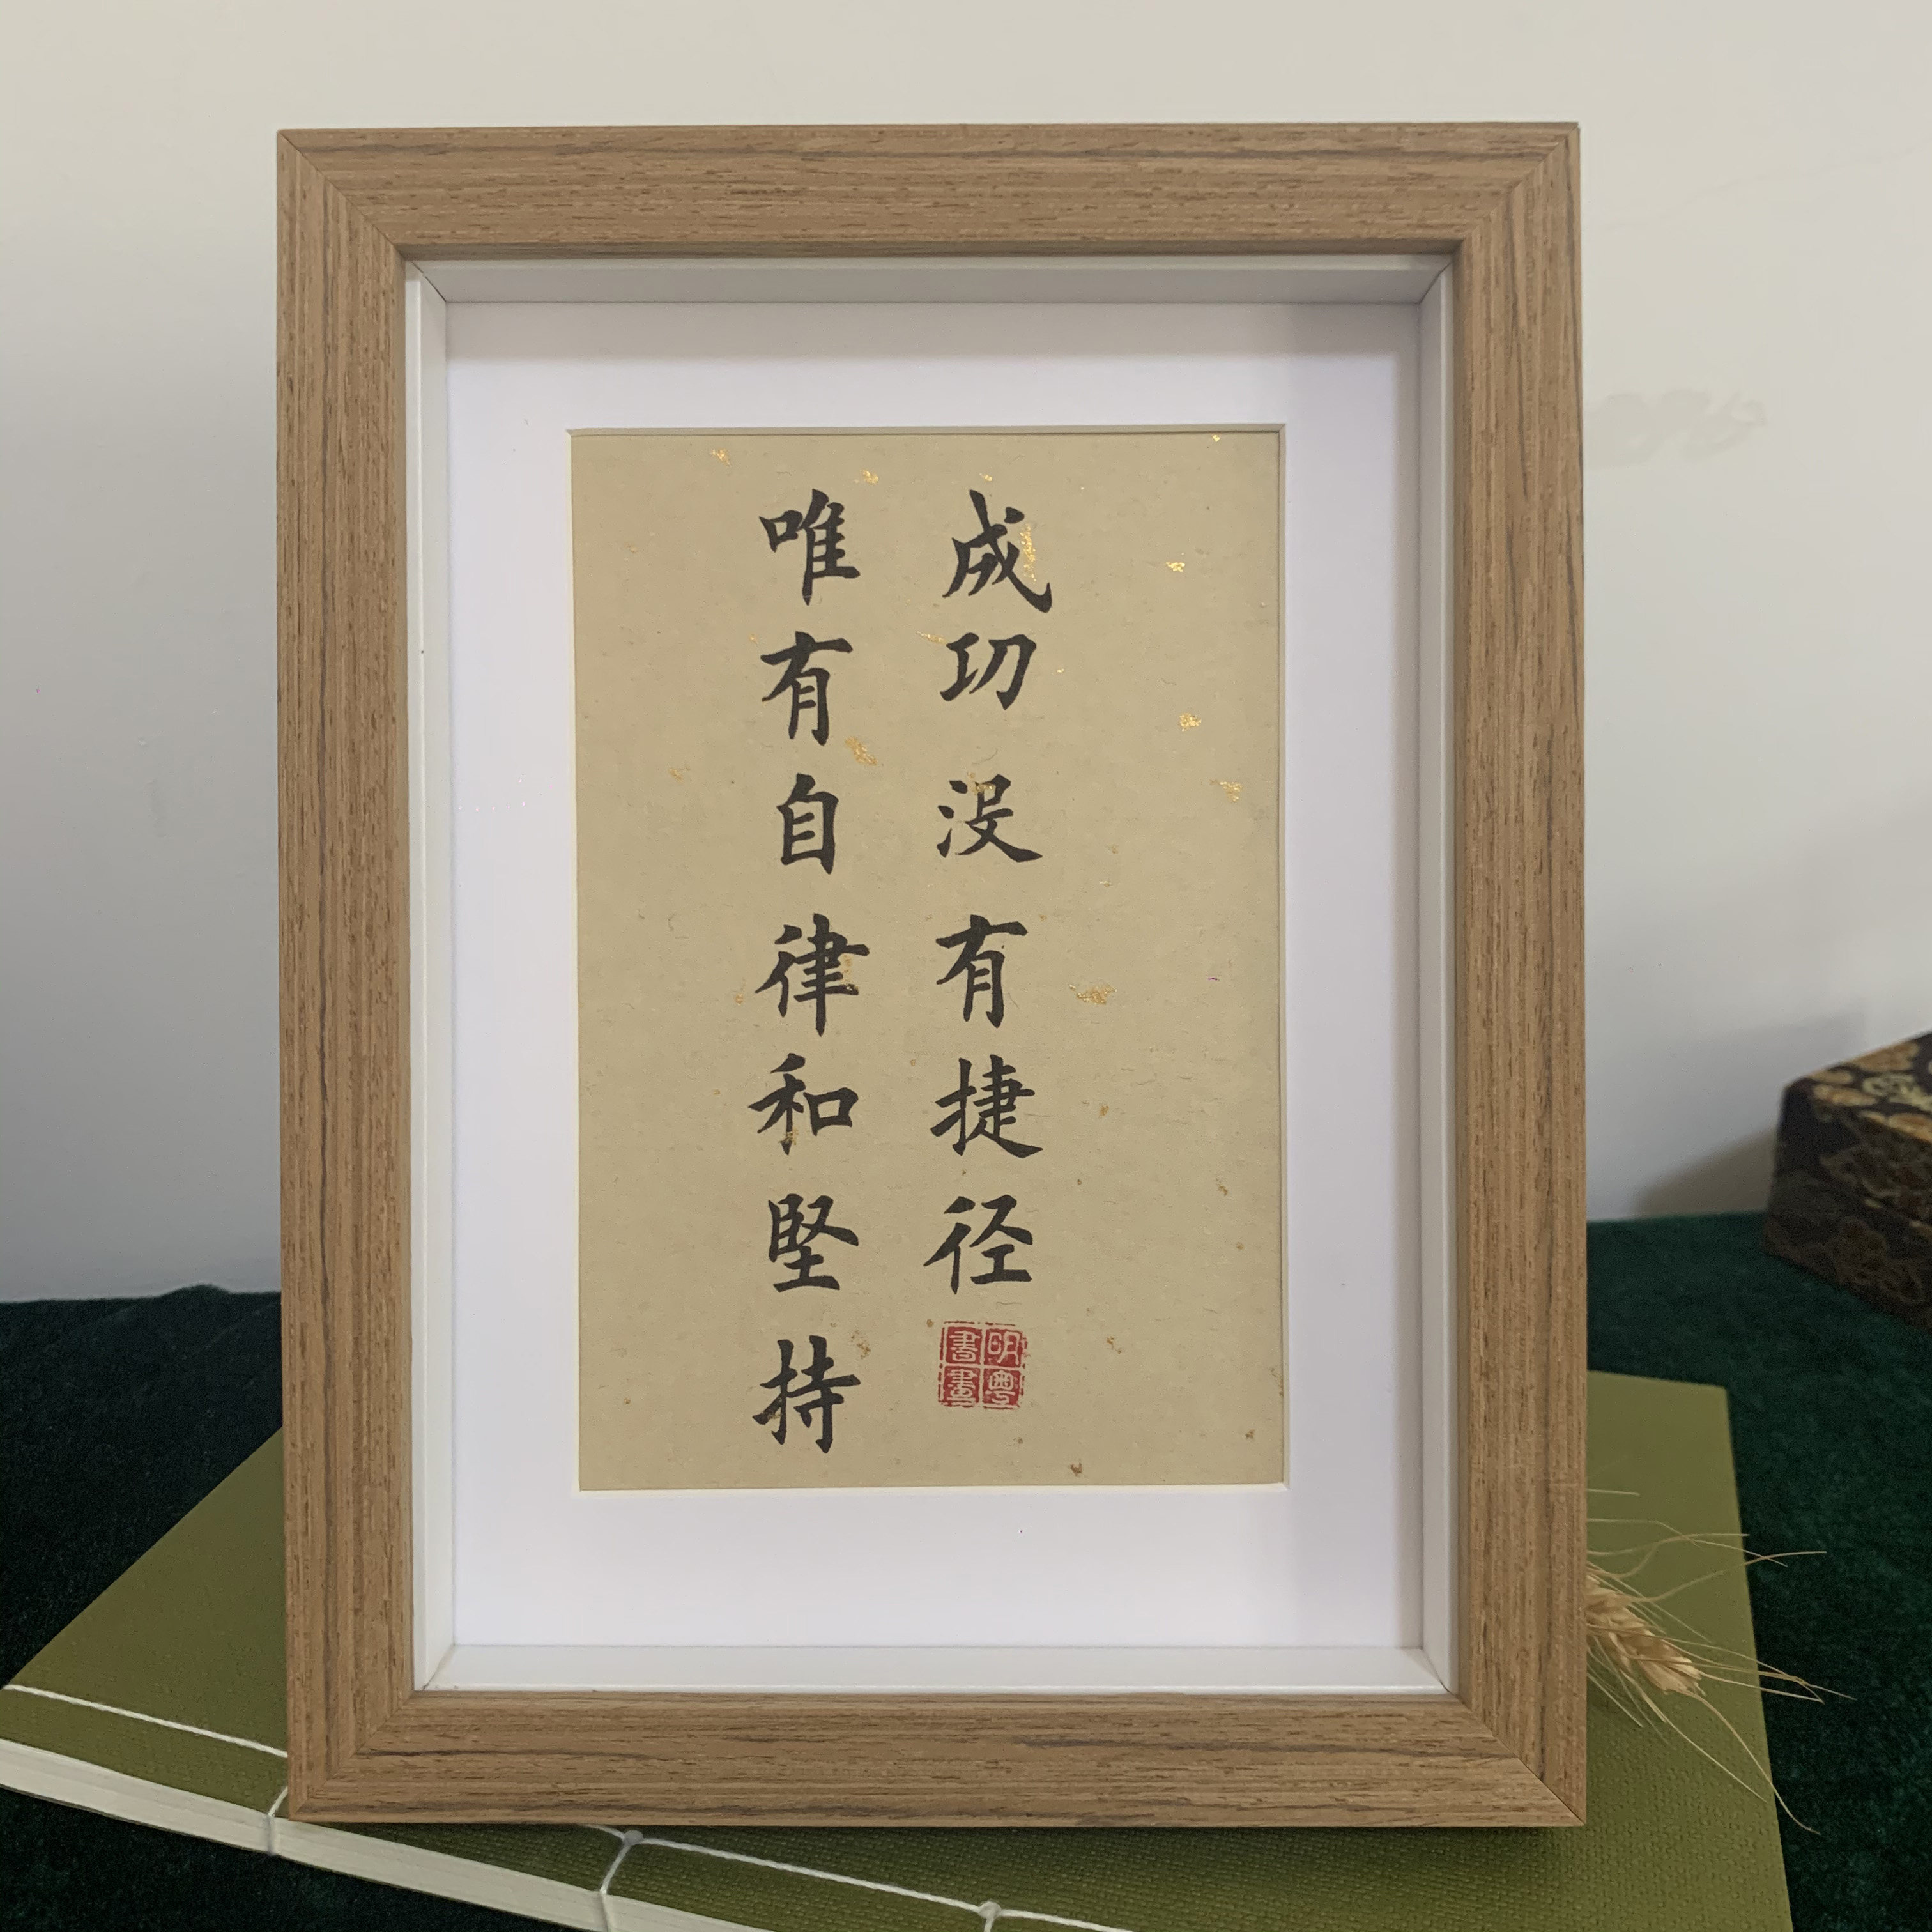 成功没有捷径
唯有自律和堅持
明粤
書畫